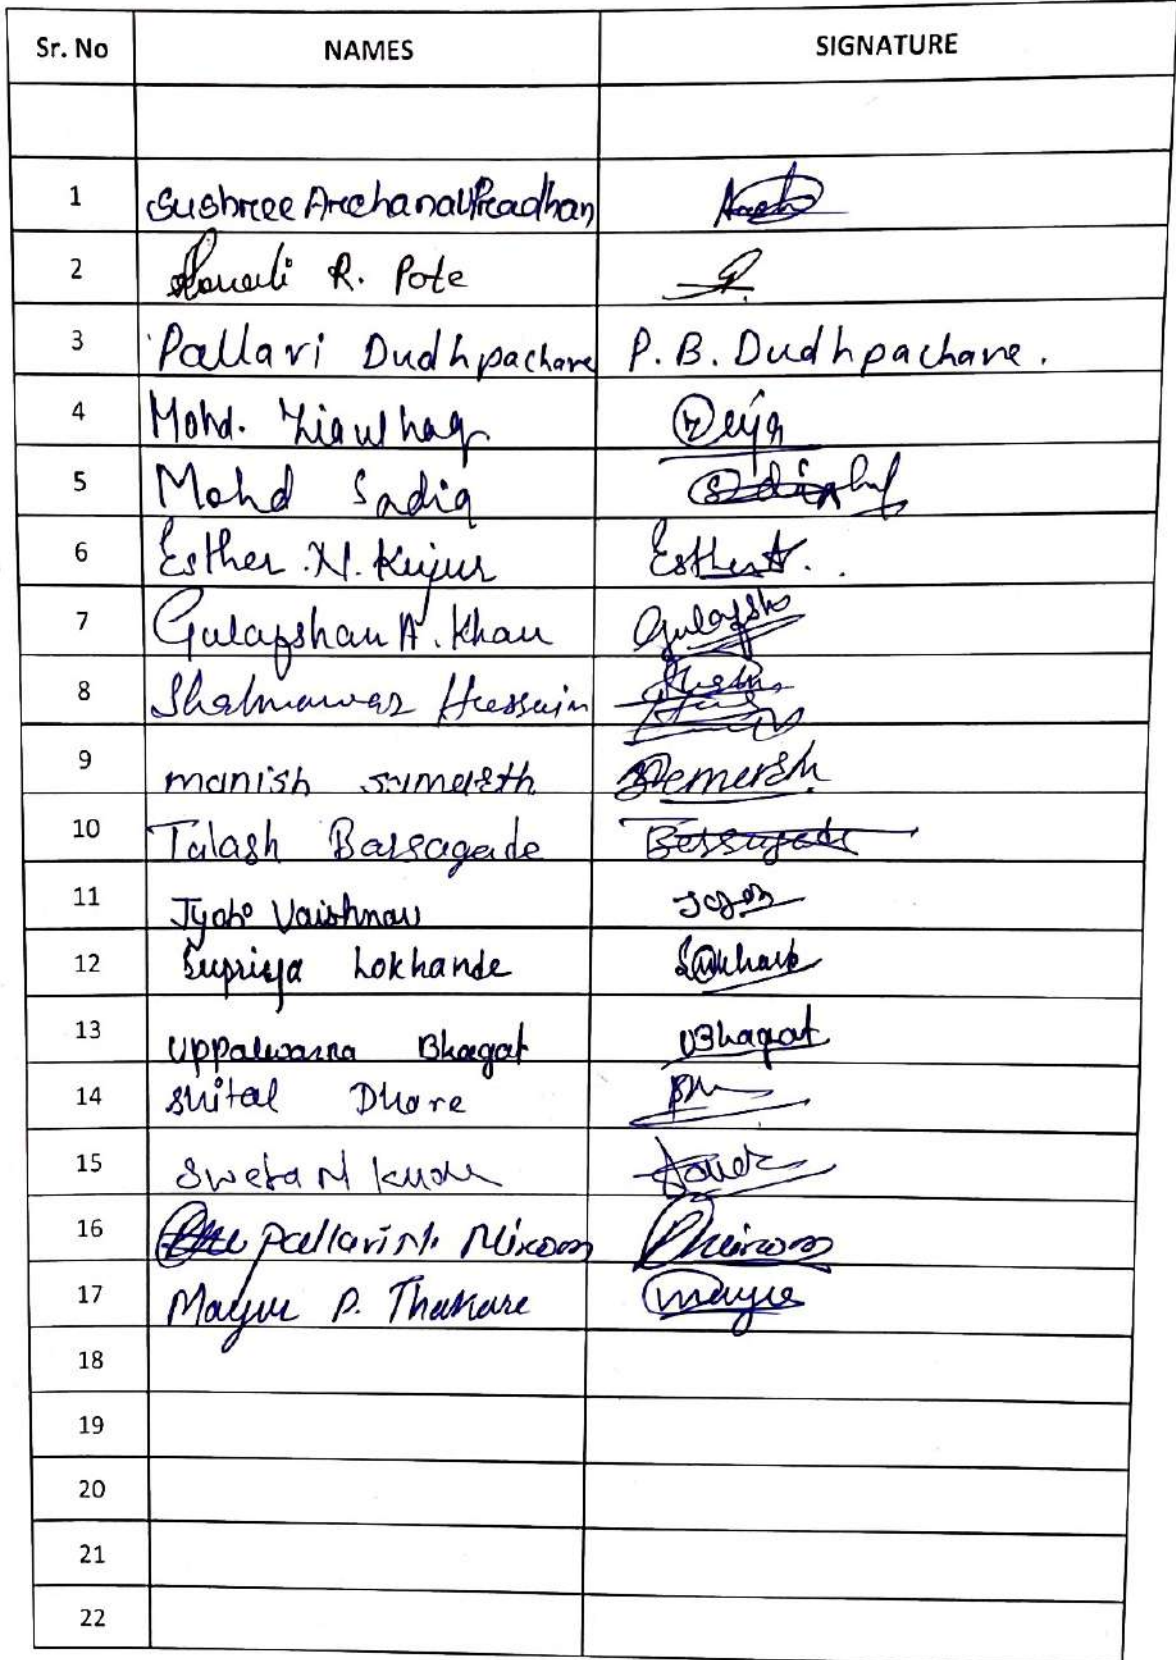 Sr. No NAMES SIGNATURE
1 Sushree Archana Pradhan
2 R. Pote
3 Pallavi Dudhpachare P. B. Dudhpachare.
4 Mohd. Ziaulhaq
5 Mohd Sadiq
6 Esther .N. Kujur Esther
7 Gulafshan A. Khan Gulafsha
8 Shahnawaz Hussain
9 manish
10 Talash Barsagade
11 Vaishnav
12 Supriya Lokhande
13 Uppalwarna Bhagat UBhagat
14 Shital Dhore
15 Sweta N
16 Pallavi
17 Mayur P. Thakare
18
19
20
21
22